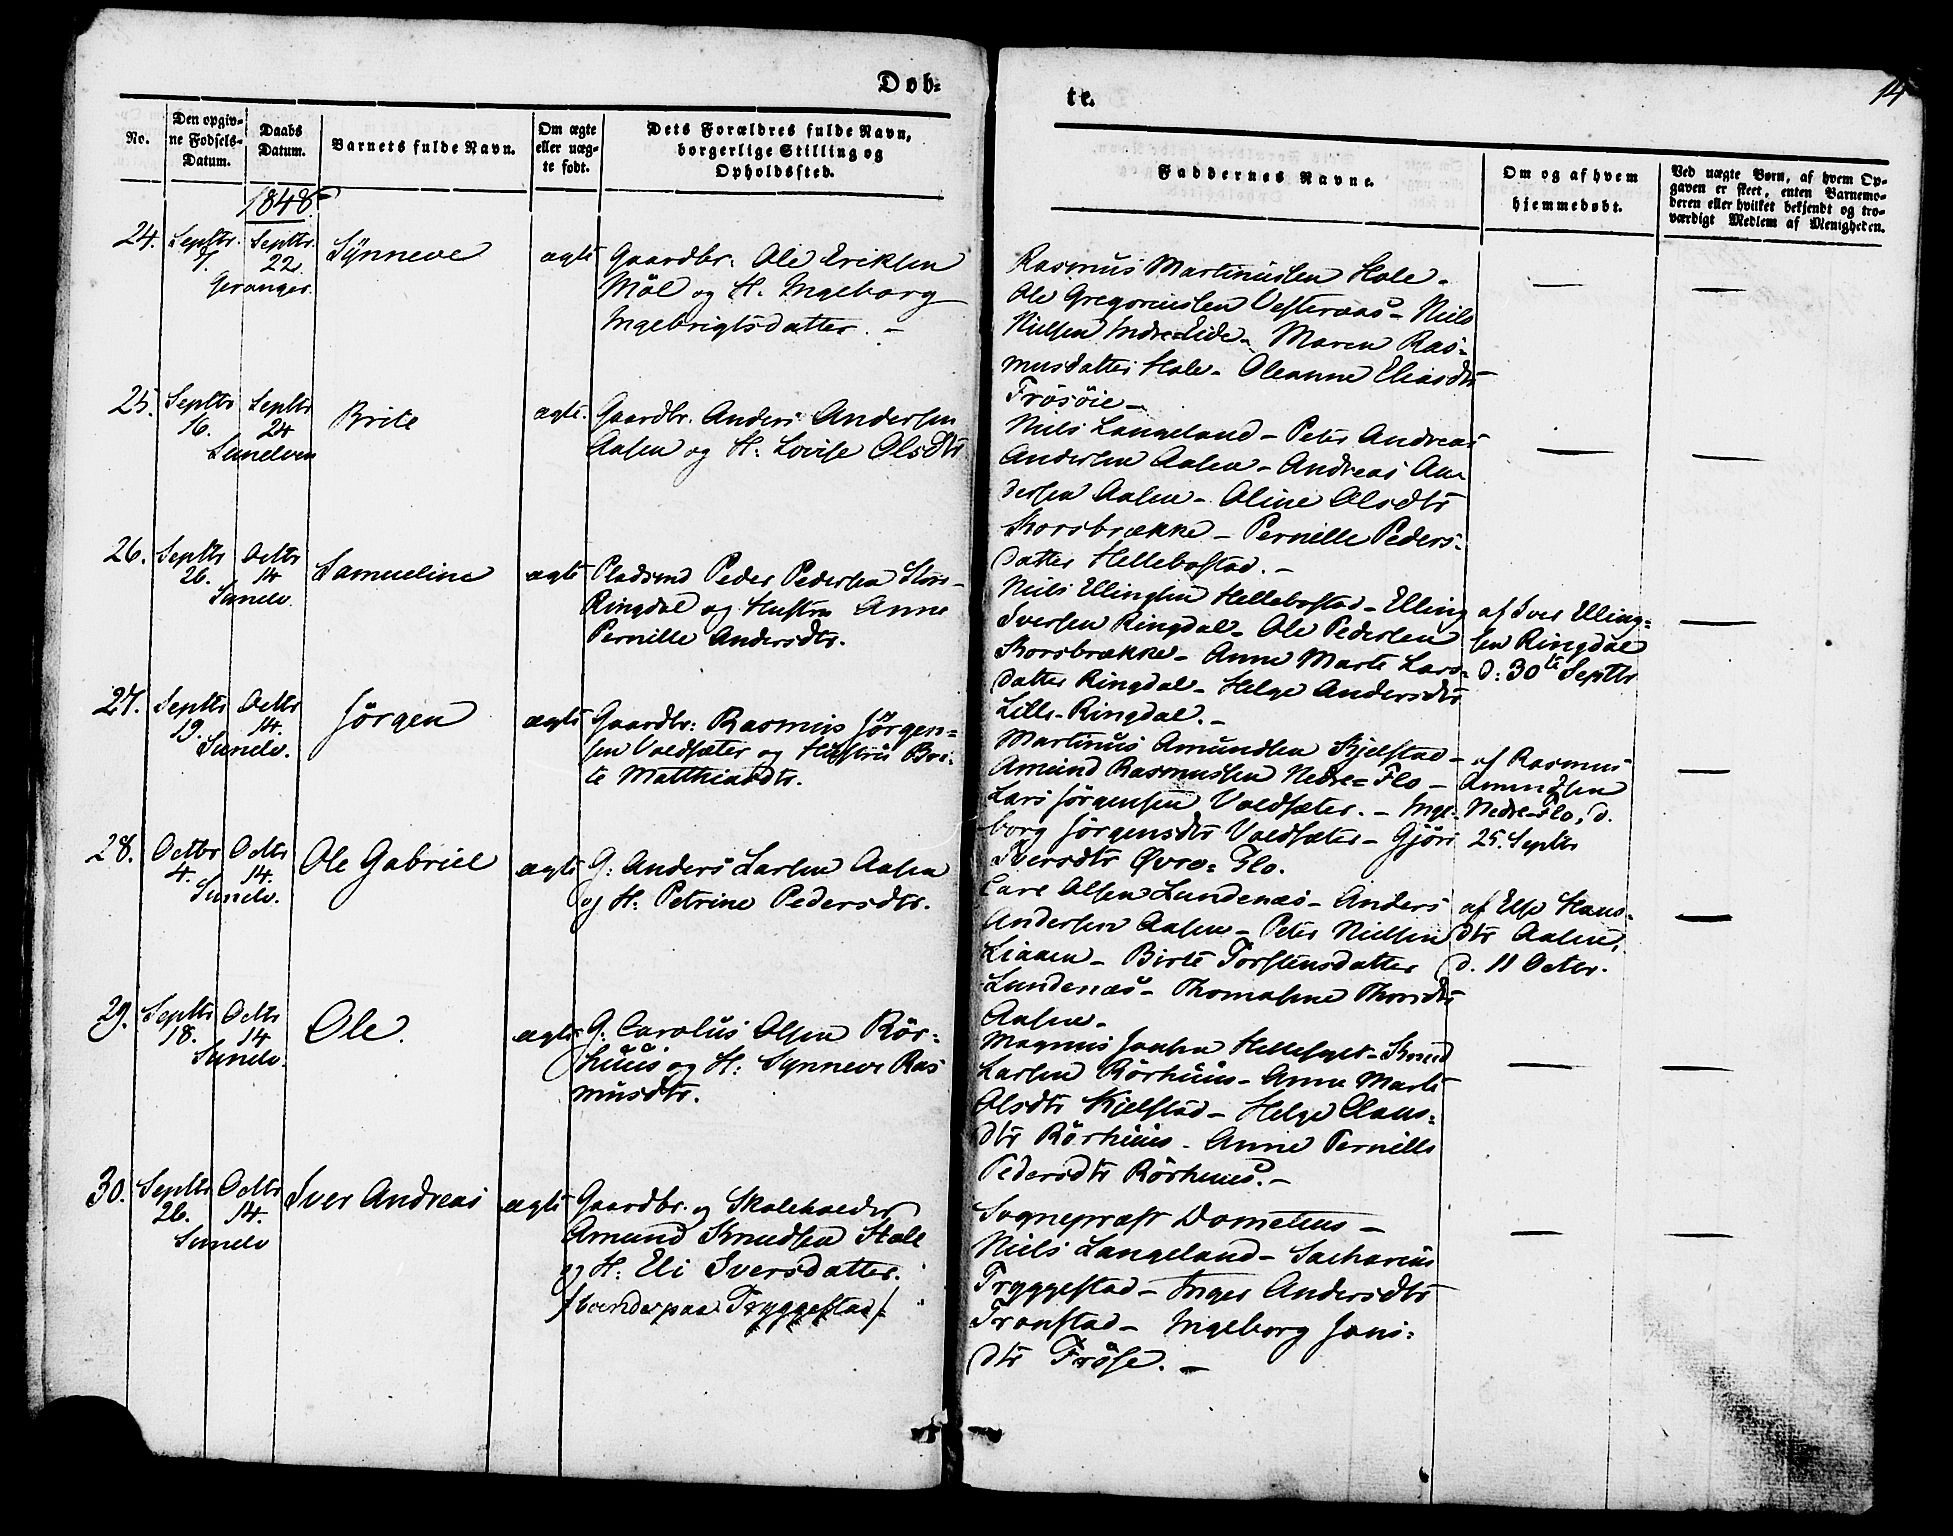 Døb-
te.
14
No.
Den opgiv-
ne Fødsels-
Datum.
Daabs
Datum.
Barnets fulde Navn.
Om ægte
eller uæg-
te født.
Dets Forældres fulde Navn,
borgerlige Stilling og
Opholdssted.
Faddernes Navne.
Om og af hvem
hjemmedøbt.
Ved uægte Børn, af hvem Op-
gaven er skeet, enten Barnemo-
deren eller hvilket bekjendt og tro-
værdigt Medlem af Menigheden.
1848
24.
Septbr.
7.
Septbr.
22
Geranger.
Synneve
ægte
Gaardbr: Ole Eriksen
Möl og H. Ingeborg
Ingebrigtsdatter. –
Rasmus Martinussen Hole –
Ole Gregoriussen Vesteraas – Niels
Nielsen Indre-Eide – Maren Ras-
musdatter Hole – Oleanne Eliasdtr
Frösöie –
25.
Septbr
16.
Septbr
24
Sunelven
Brite
ægte.
Gaardbr. Anders Andersen
Aasen og H: Lovise Olsdtr
Niels Langeland – Peter Andreas
Andersen Aasen – Andreas An-
dersen Aasen – Oline Olsdtr
Korsbrække – Pernille Peders-
datter Hellebostad. –
26.
Septbr
26.
Octbr
14
Sunelv.
Samueline
ægte
Pladsmd Peder Pedersen Stor-
Ringdal og Hustru Anne
Pernille Andersdtr.
Niels Ellingsen Hellebostad – Elling
Iversen Ringdal – Ole Pedersen
Korsbrække – Anne Marte Lars-
datter Ringdal – Helge Andersdtr
Lille-Ringdal. –
af Iver Elling-
sen Ringdal
d: 30te Septbr
27.
Septbr
19.
Octbr
14.
Sunelv.
Jörgen
ægte
Gaardbr: Rasmus Jörgen-
sen Voldsæter og Hustru Bri-
te Matthiasdtr.
Martinus Amundsen Kjelstad –
Amund Rasmussen Nedre-Flo –
Lars Jörgensen Voldsæter. – Inge-
borg Jörgensdtr Voldsæter – Gjöri
Iversdtr Øvre-Flo.
af Rasmus
Amundsen
Nedre-Flo, d.
25. Septbr
28.
Octbr
4.
Octbr
14.
Sunelv.
Ole Gabriel
ægte
G: Anders Larsen Aasen
og H: Petrine Pedersdtr.
Lars Olsen Lundenæs – Anders
Andersen Aasen – Peter Nielsen
Liaaen – Birte Torstensdatter
Lundenæs – Thomasine Thorsdtr
Aasen –
af Else Hans-
dtr Aasen,
d. 11 Octbr.
29.
Septbr
18.
Octbr
14
Sunelv.
Ole.
ægte
G: Carolus Olsen Rör-
huus og H: Synneve Ras
musdtr.
Magnus Jonsen Hellesylt – Knud
Larsen Rörhuus – Anne Marte
Olsdtr Kjelstad – Helge Claus-
dtr Rörhuus – Anne Pernille
Pedersdtr Rörhuus. –
30.
Septbr
26.
Octbr
14.
Sunelv
Iver Andreas
ægte
Gaardbr. og Skoleholder
Amund Knudsen Hole
og H: Eli Iversdatter.
/boende paa Tryggestad/
Sognepræst Dometius –
Niels Langeland – Sacharias
Tryggestad – Inger Andersdtr
Tronstad – Ingeborg Jons-
dtr Fröse. –